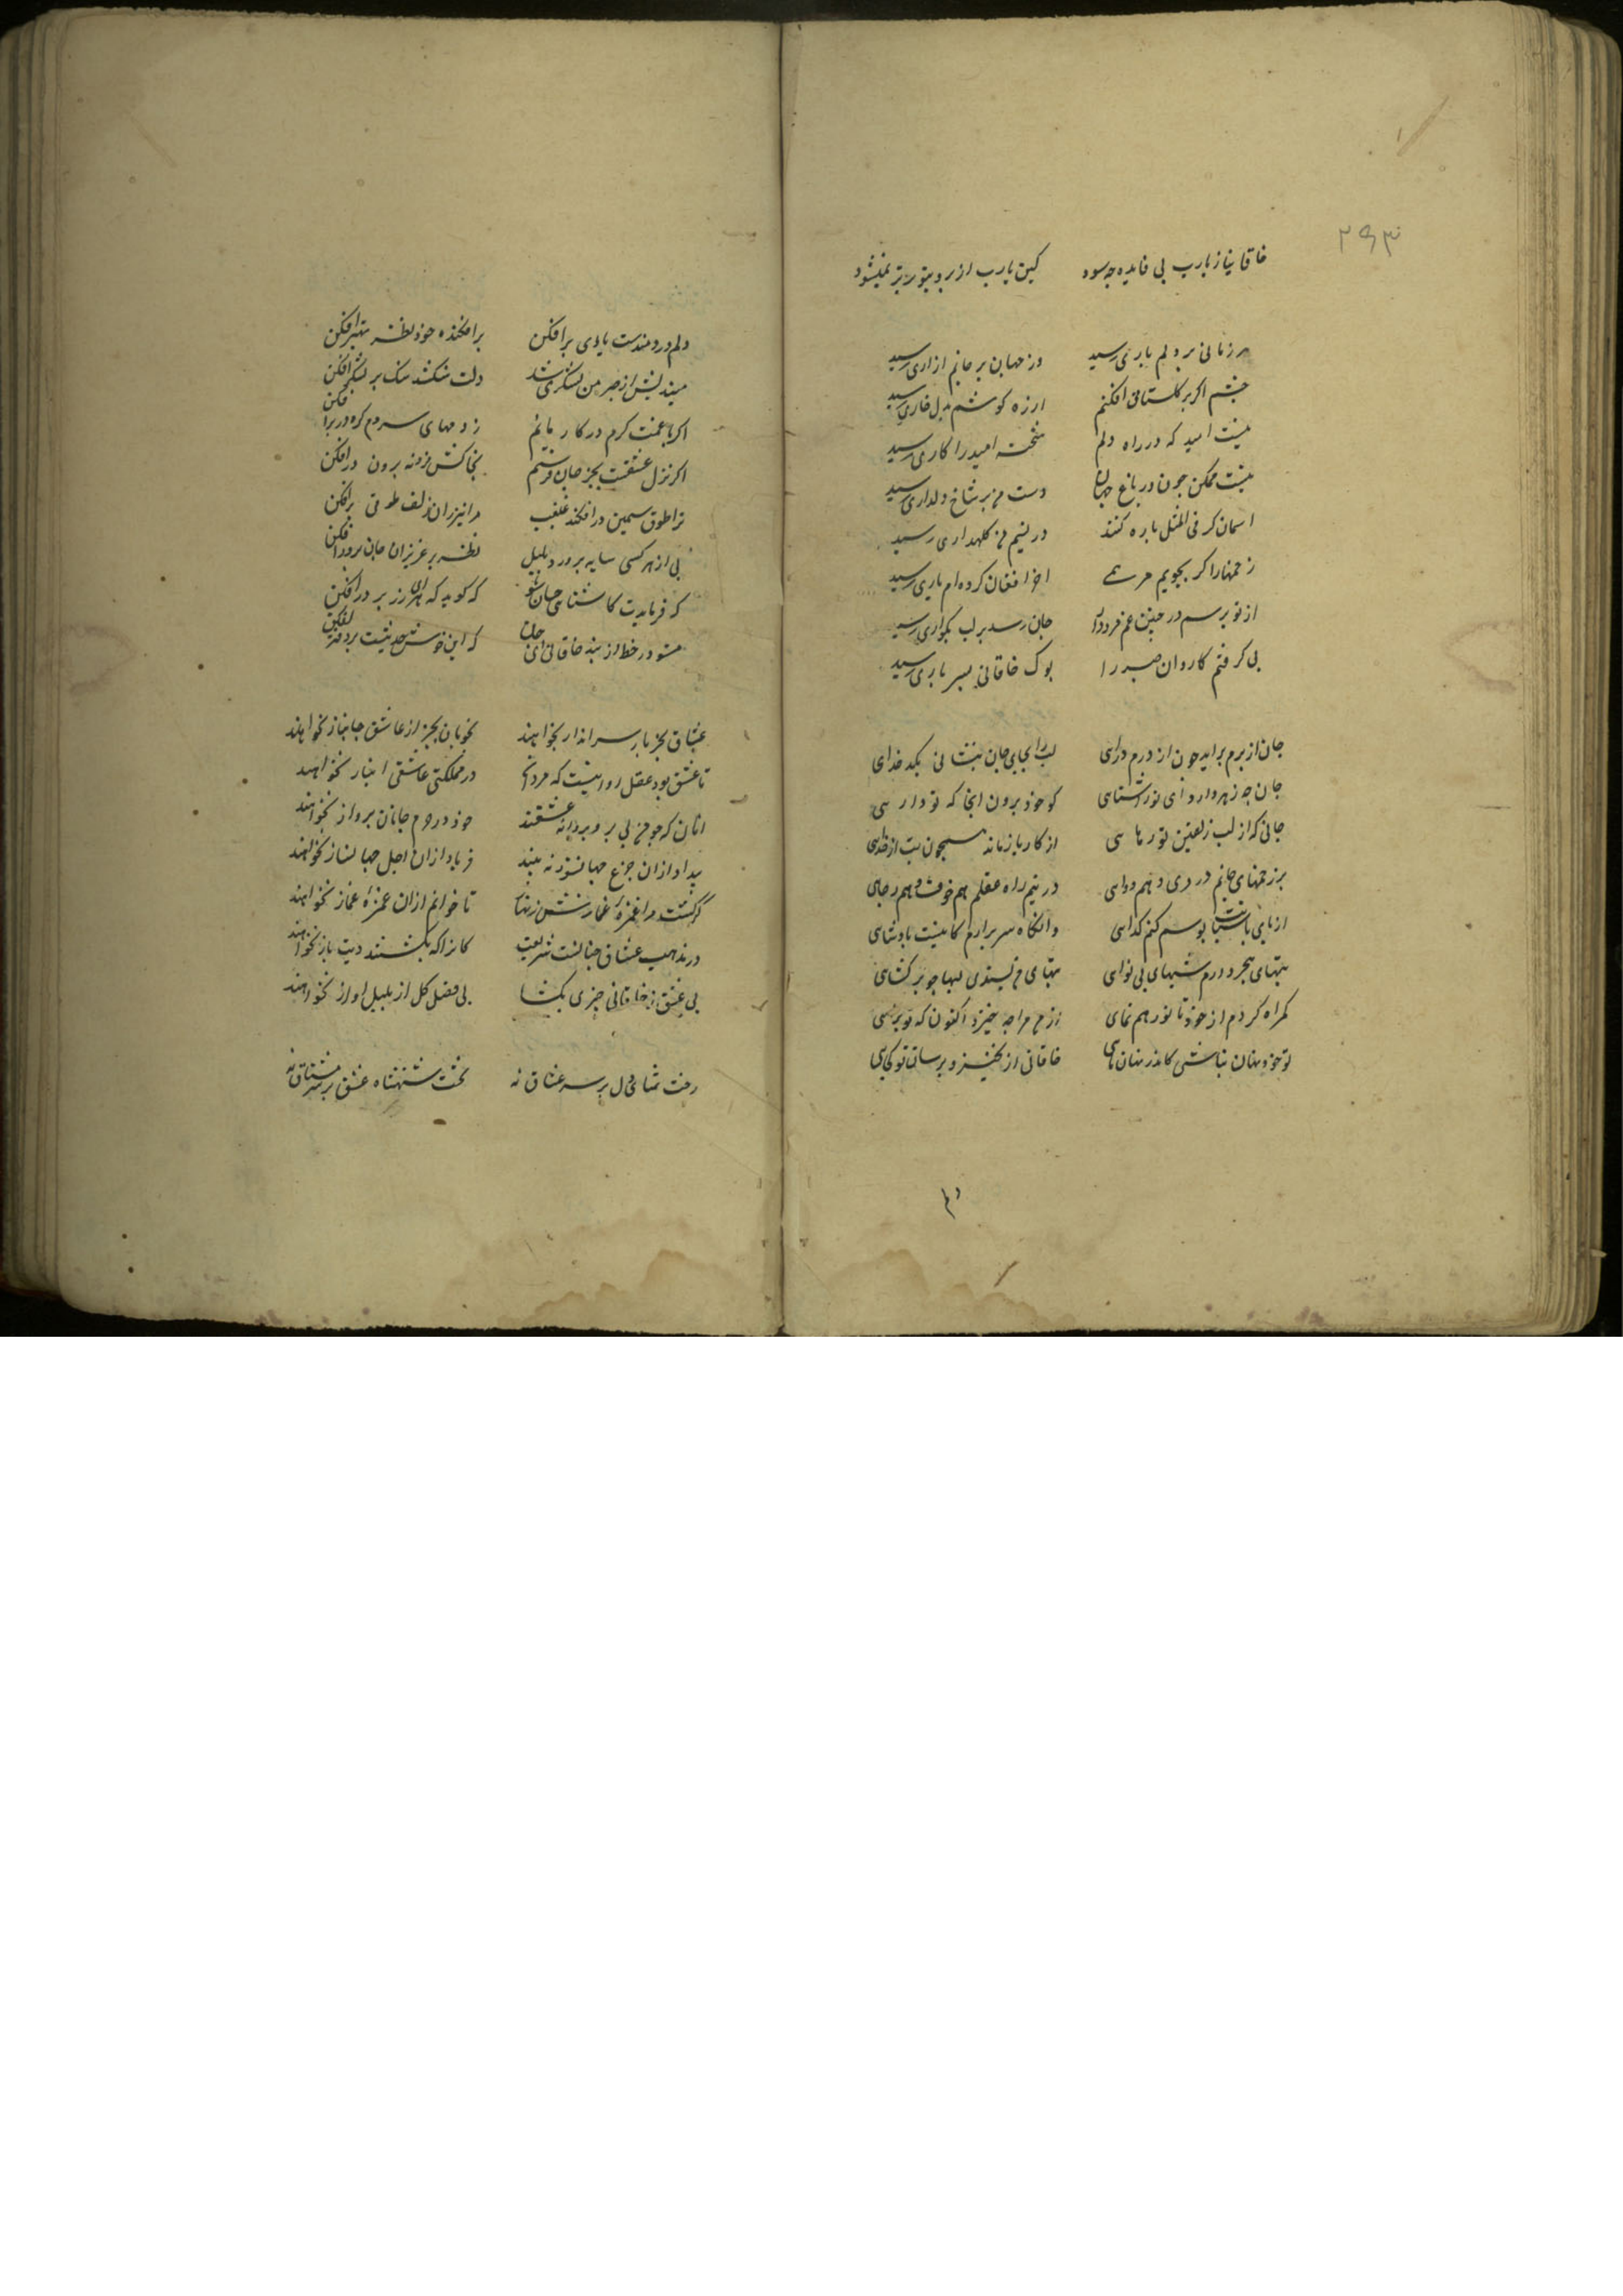 ۲۹۳
خاقانیا ز یارب بی فایده چه سود کین یارب از برو بتو بر تر نمیشود
هر زمانی بر دلم باری رسد وز جهان بر جانم ازاری رسد
چشم اگر بر گلستانی افکنم از ره گوشم بدل خاری رسد
نیست امید که در راه دلم شحنه امید را کاری رسد
نیست ممکن چون در باغ جهان دست من بر شاخ دلداری رسد
اسمان گر فی المثل پاره کنند در نسیم من کلهداری رسد
زخمها را گر بجویم مرهمی اخر افغان کرده‌ام یاری رسد
از تو پرسم در چنین غم مرد را جان رسد بر لب بگو اری رسد
پی گرفتم کاروان صبر را بوک خاقانی بسر باری رسد
جان از برم براید چون از درم درای لب را بجای جان نیست نی بکدخدای
جان چه زهره دارد ای نور اشنای کو خود برون اید انجا که تو درای
جانی که از لب زلفین تو رهایی از کار باز ماند همچون بت از خدای
بر زخمهای جانم در دری و هم دوای در نیم راه عقلم هم خوف و هم رجای
از پای پاسبانت بوسه کنم گدای وانگاه سر برارم کاینست پادشای
تنهای هجر و دردم شبهای بی نوای تنهای من پسندی لبها چو بر گشای
گمراه کردم از خود تا تو رهم نمای از من مرا چه خیزد اکنون که تو برنمی
تو خود نهان نباشی کاندر نهان مایی خاقانی از تحیر پرسان تو کجایی
۲
دلم دردمندست یادی بر افکن بر افکنده خود نظر بهتر افکن
میندیش از صبر من لشکری شد دلت نشکند سنگ بر لشکر افکن
اگر با غمت گرم در کار نایم ز دمهای سردم گره در بر افکن
اگر نزل عشقت بجز جان فرستم بخاکش فرو نه برون در افکن
ترا طوق سیمین در افکند غبغب مرا نیز ازان زلف طوقی بر افکن
پی از هر کسی سایه پرورد بلبل نظر بر عزیزان جان پرور افکن
که فرمایدت کاشنای خسان شو که گوید که هرای زر بر در افکن
مشو در خط از پند خاقانی ای جان که این خوش حدیثیست بر دفتر افکن
عشاق بجز یار سر انداز نخواهند خوبان بجز از عاشق جانباز نخواهند
تا عشق بود عقل روا نیست که مردان در مملکتی عاشقی انباز نخواهند
انان که چو من بی پر و پروانه عشقند خود در حرم جانان پرواز نخواهند
بیداد ازان جزع جهانسوز نه بینند فریاد ازان لعل جهانساز نخواهند
گر کشت مرا غمزه غماز زنهار تا خوانم ازان غمزه غماز نخواهند
در مذهب عشاق چنانست شریعت کانرا که بکشتند دیت باز نخواهند
بی عشق ز خاقانی چیزی نگشاید بی فصل گل از بلبل اواز نخواهند
رخت تمنای دل بر سر عشاق نه تخت شهنشاه عشق بر سر مشتاق نه